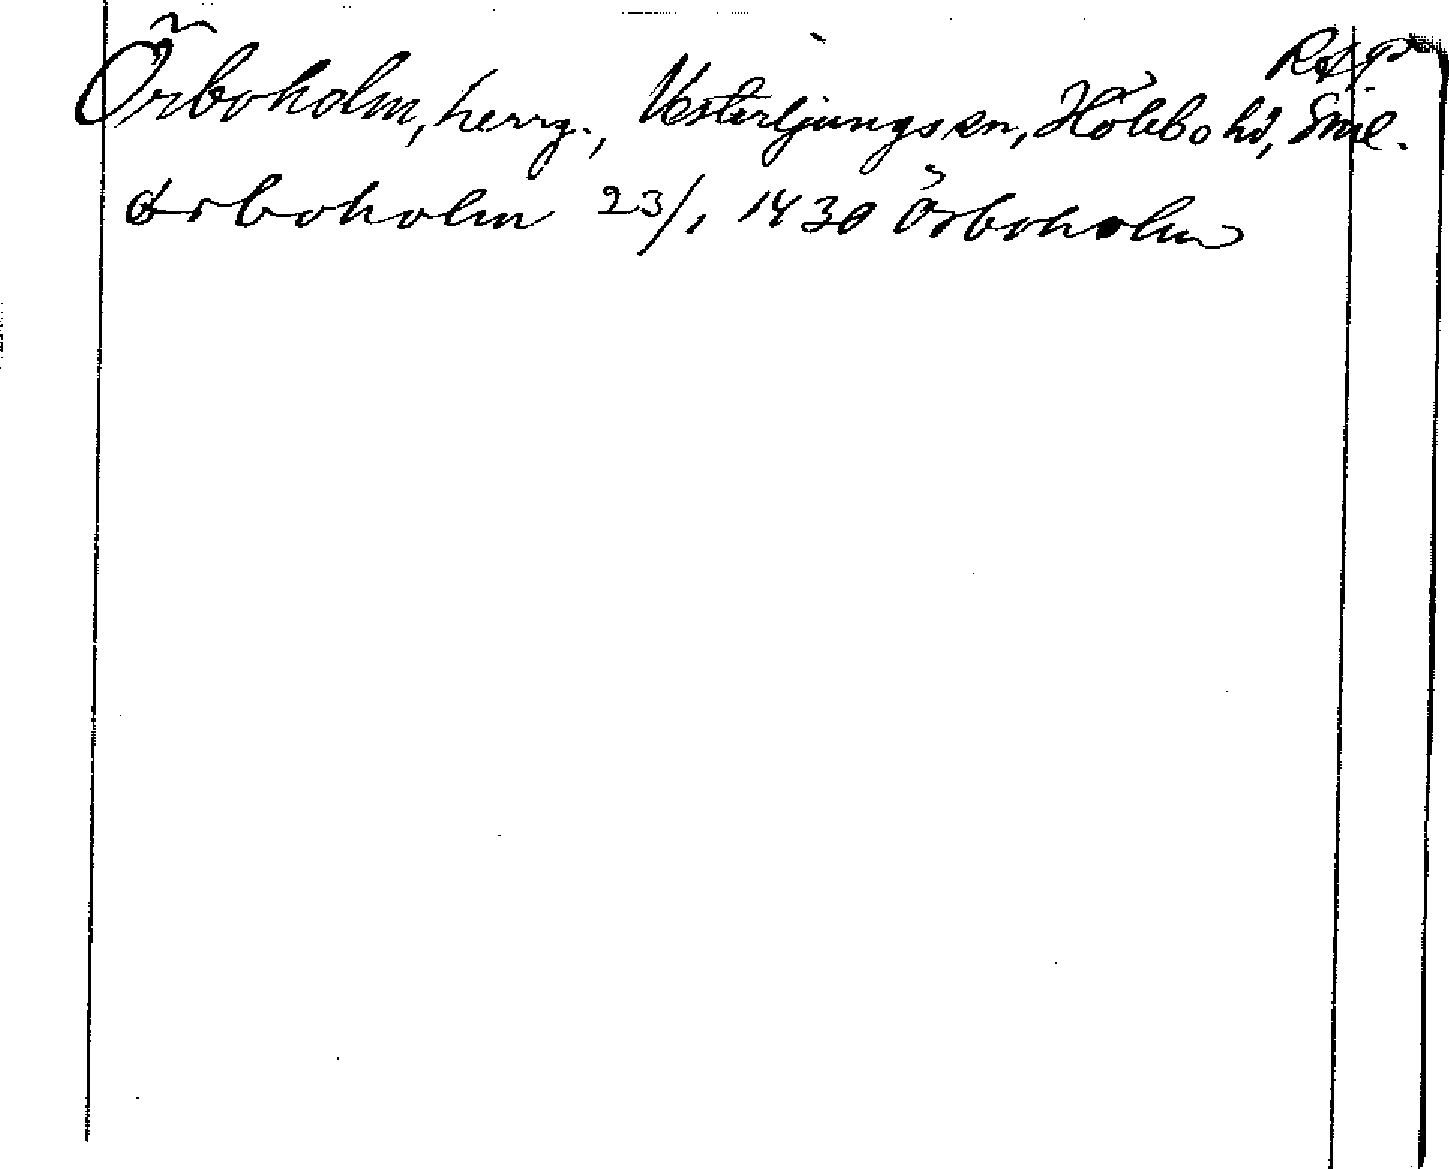 RAPP
Örboholm, herrg., Vesterljungs sn, Hölebo hd, Sml.
ørboholm 23/1 1430 Örboholm